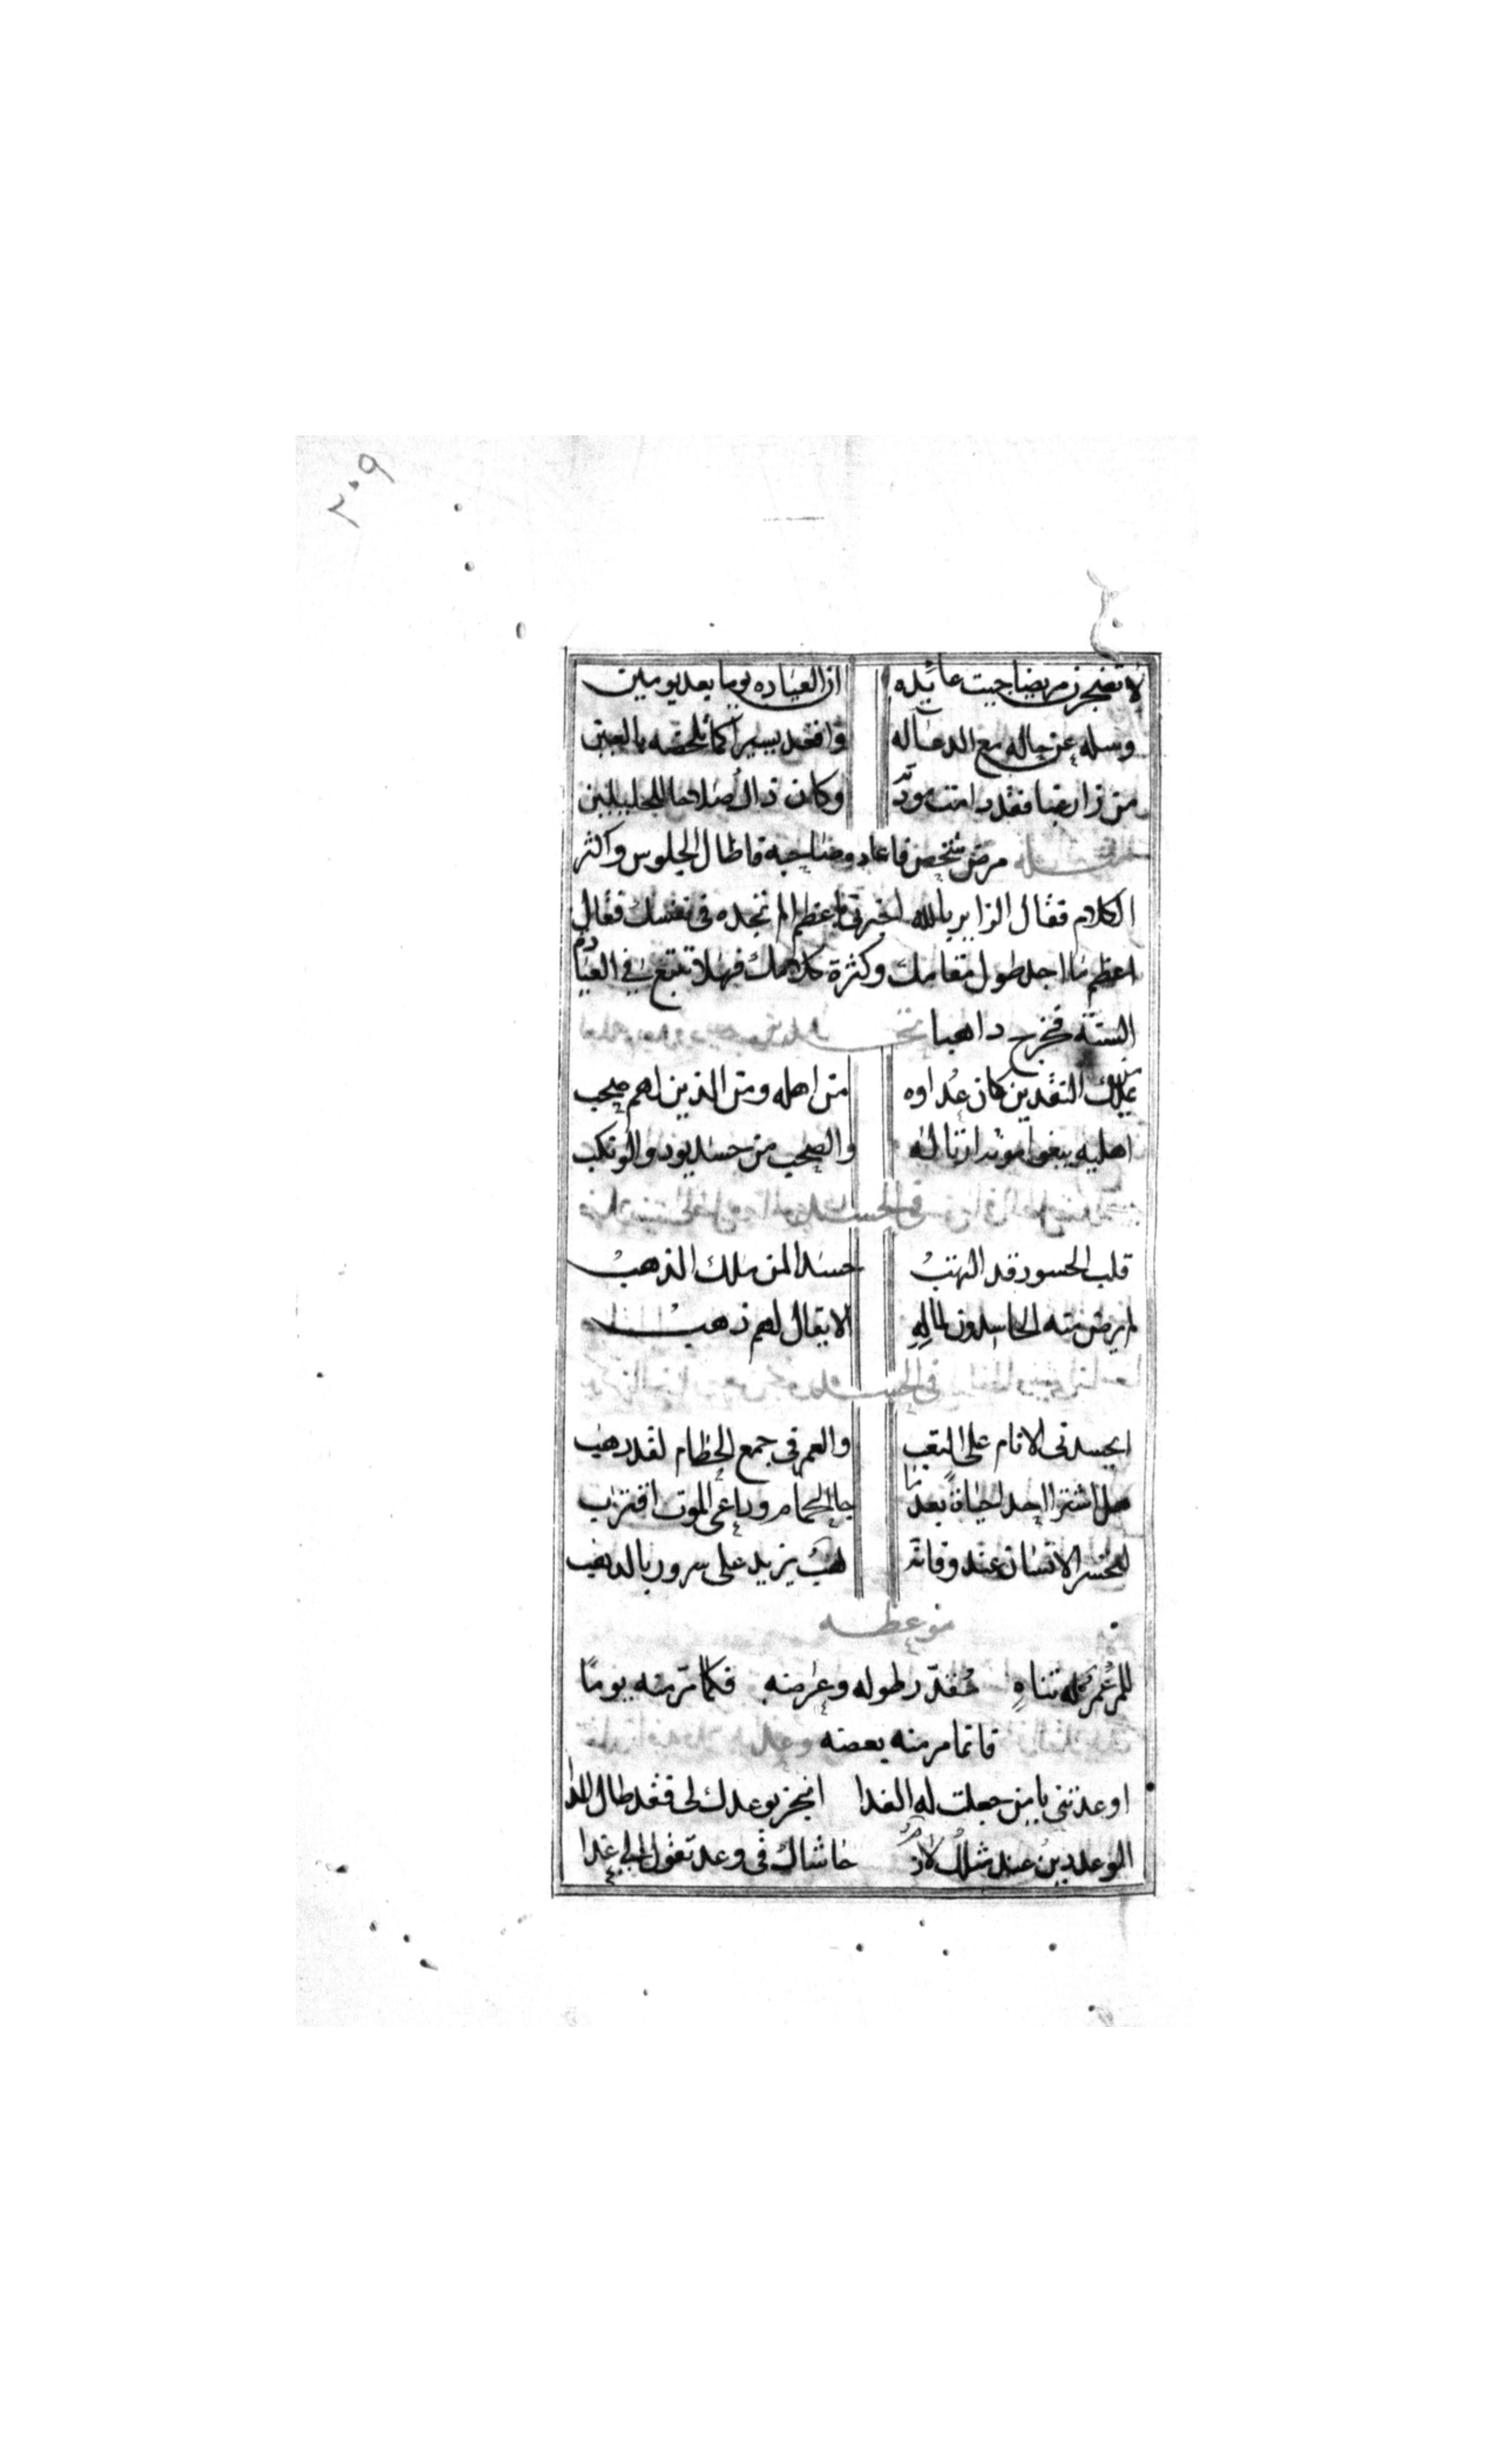 ٢٠٩
لا تضجرن مريضا جيت عائده ان العياده يوما بعد يومين
وسله عن حاله مع الدعا له واقعد يسيرا كما تلحظه بالعين
من زار غبا فقد دامت مودته وكان ذاك صلاحا للخليلين
مرض شخص فاعاده صاحبه فاطال الجلوس واكثر
الكلام فقال الزاير بالله اخبرني ما عظم الم تجده في نفسك فقال
اعظم ما اجد طول مقامك وكثرة كلامك فهلا تتبع في العيادة
السنة فخرج داهبا
من ملك النقدين كان عداوه من اهله ومن الذين لهم صحب
اهليه يبغوا موته ارثا له والصحب من حسد يودوا لو نكب
قلب الحسود قد التهب حسدا لمن ملك الذهب
لم يرض منه الحاسدون لماله الا يقال لهم ذهب
ايحسدني الانام على التعب والعمر في جمع الحطام لقد ذهب
هل اشترا احد احياة بعدما جا الحمام وداعى الموت اقترب
للخسر الانسان عند وفاته لهب يزيد على سرور بالذهب
موعظه
للمرء عمر له تناه مقدر طوله وعرضه فكلما مر منه يوما
فانما مر منه بعضه
اوعدتني يا من جعلت له الفدا انجز بوعدك لى فقد طال المدا
الوعد دين عند مثلك لازم حاشاك في وعد تقول الى غدا